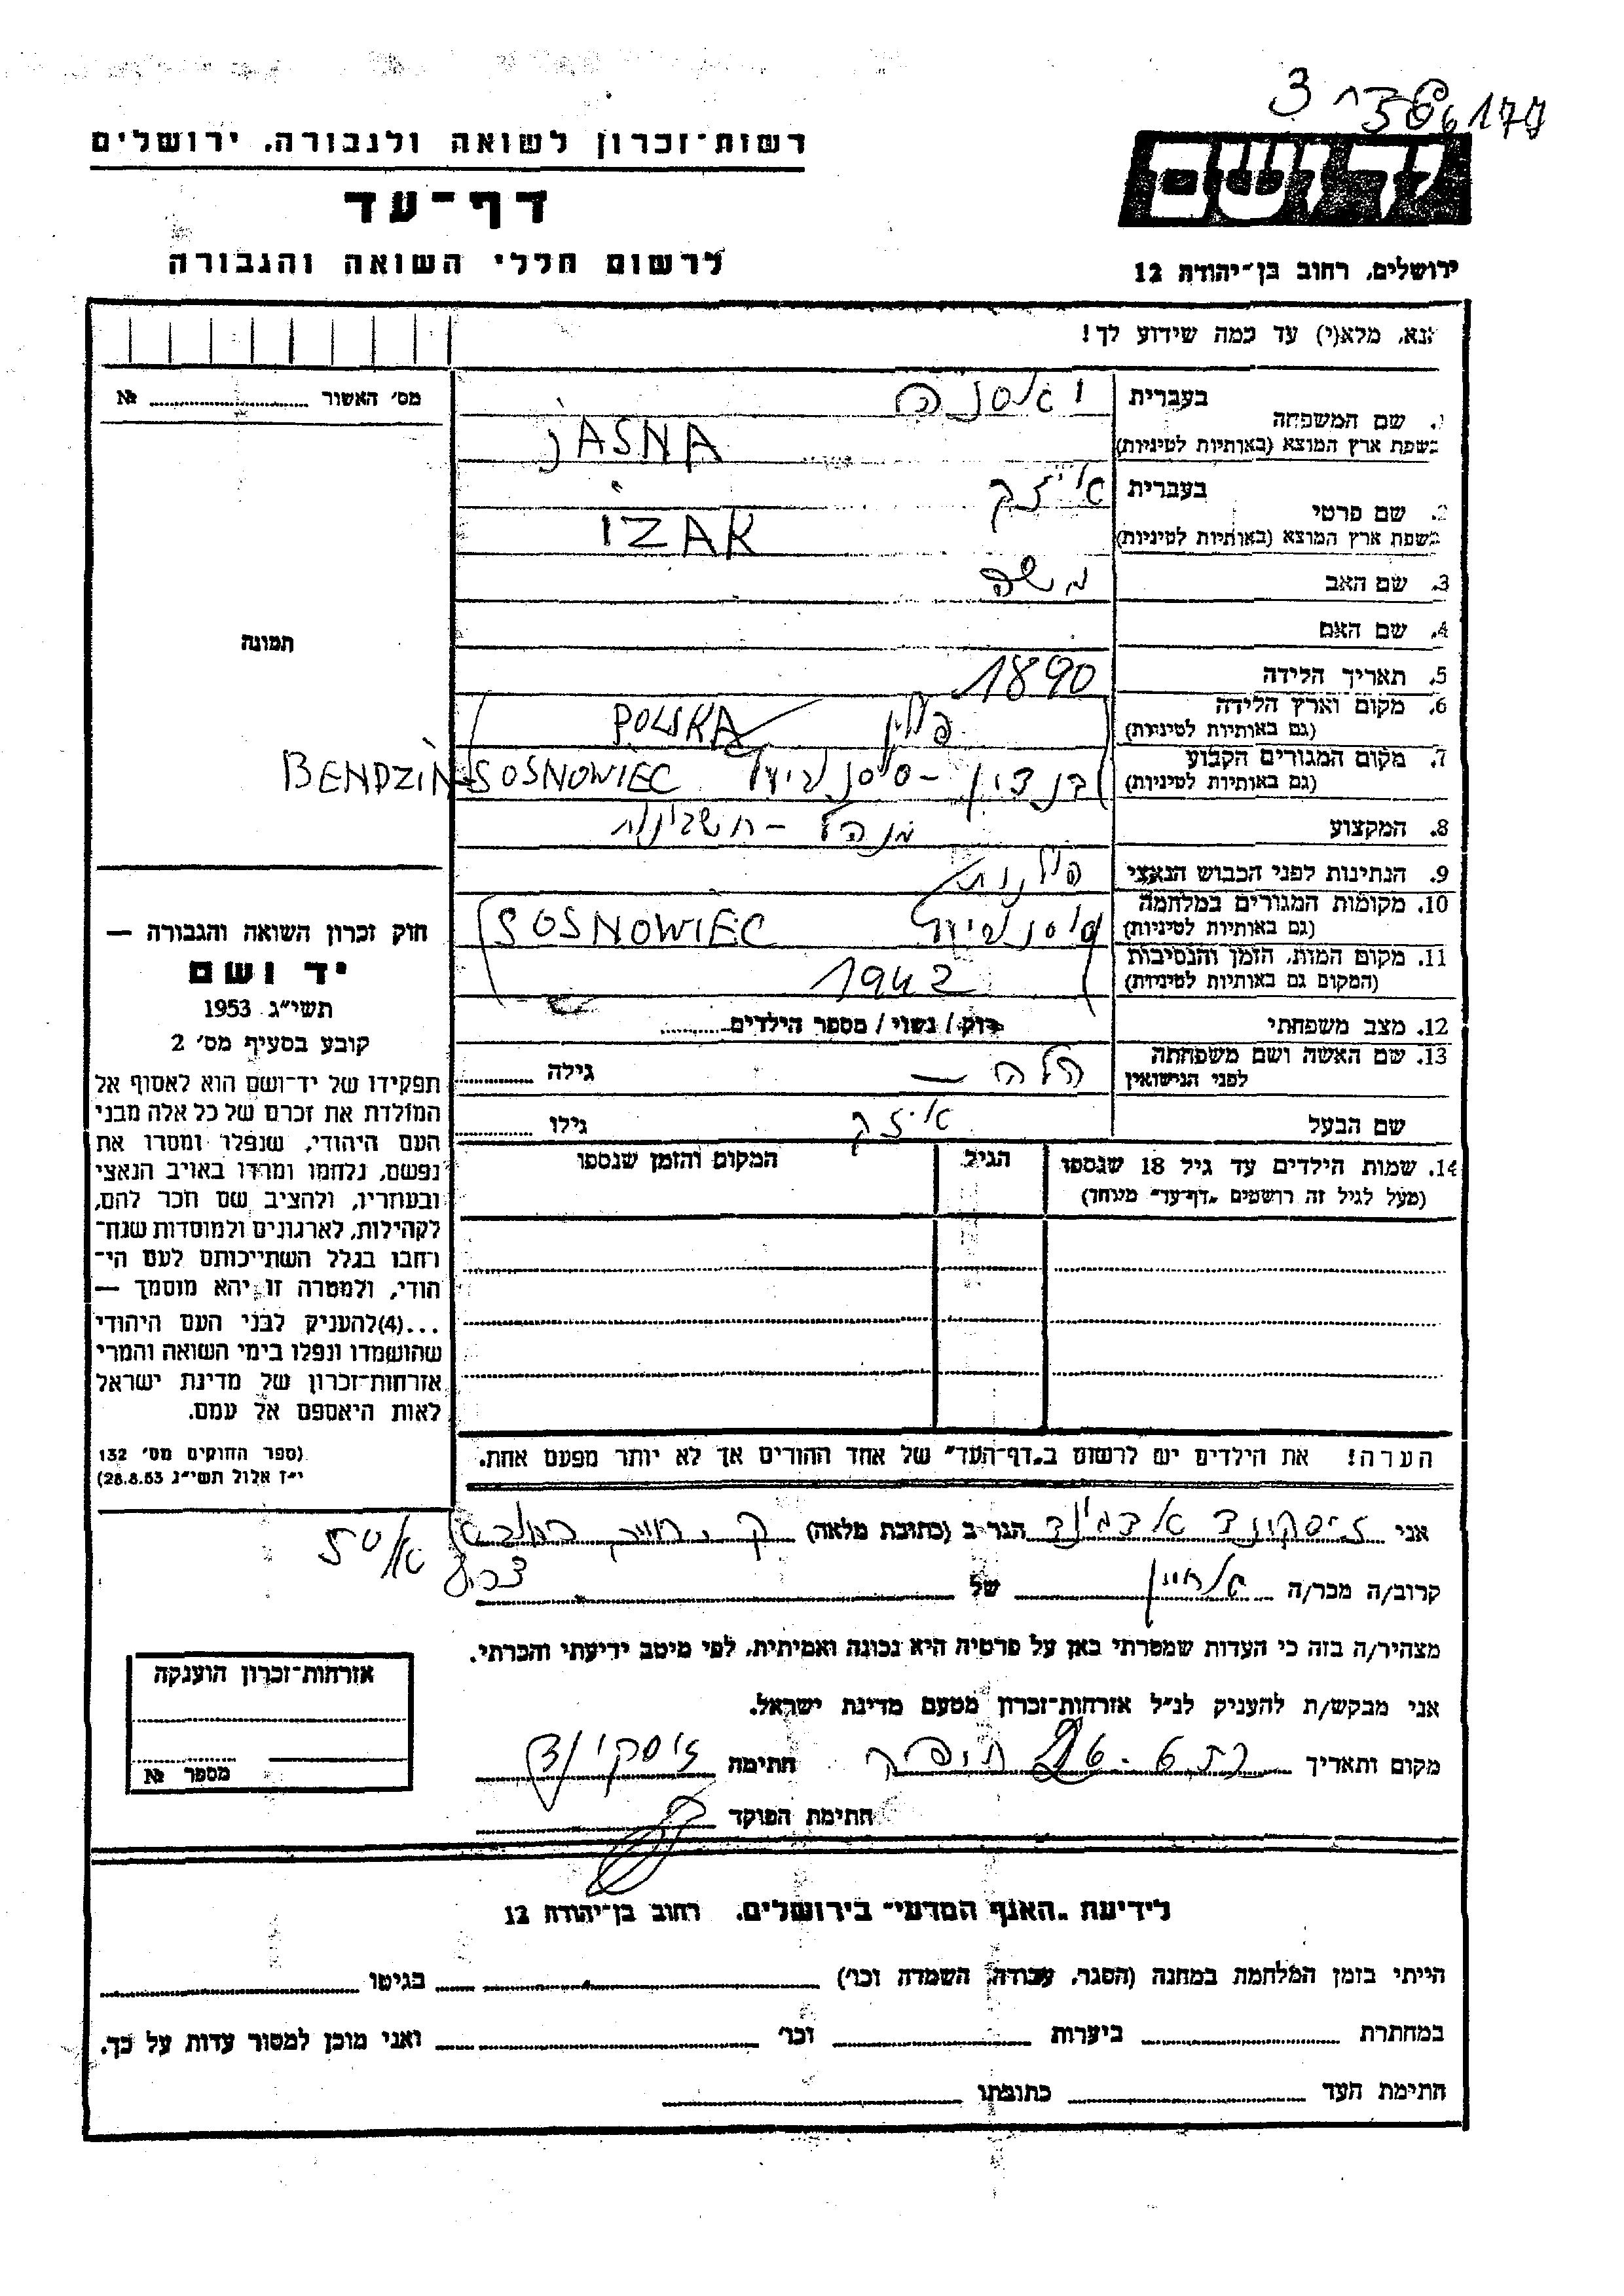 רשות־זכרון לשואה ולגבורה. ירושלים
דף־עד
לרשום חללי השואה והגבורה
ידושם
ירושלים. רחוב בן־יהודה 12
אנא, מלא(י) עד כמה שידוע לך!
מס׳ האשור № 
תמונה
1. שם המשפחה בעברית יאסנה
בשפת ארץ המוצא (באותיות לטיניות) JASNA
2. שם פרטי בעברית איזק
בשפת ארץ המוצא (באותיות לטיניות) IZAK
3. שם האב משה
4. שם האם
5. תאריך הלידה 1890
6. מקום וארץ הלידה (גם באותיות לטיניות) פולין POLSKA
7. מקום המגורים הקבוע (גם באותיות לטיניות) בנדזין - סוסנוביץ BENDZIN-SOSNOWIEC
8. המקצוע מנהל - חשבונות
9. הנתינות לפני הכבוש הנאצי פולנית
10. מקומות המגורים במלחמה (גם באותיות לטיניות) סוסנוביץ SOSNOWIEC
11. מקום המות, הזמן והנסיבות (המקום גם באותיות לטיניות) 1942
12. מצב משפחתי רוק / נשוי / מספר הילדים
13. שם האשה ושם משפחתה לפני הנישואין הלה — גילה
שם הבעל איזק גילו
14. שמות הילדים עד גיל 18 שנספו הגיל המקום והזמן שנספו
(מעל לגיל זה רושמים „דף־עד״ מיוחד)
הערה! את הילדים יש לרשום ב„דף־העד״ של אחד ההורים אך לא יותר מפעם אחת.
חוק זכרון השואה והגבורה —
יד ושם
תשי״ג 1953
קובע בסעיף מס׳ 2
תפקידו של יד־ושם הוא לאסוף אל
המולדת את זכרם של כל אלה מבני
העם היהודי, שנפלו ומסרו את
נפשם, נלחמו ומרדו באויב הנאצי
ובעוזריו, ולהציב שם וזכר להם,
לקהילות, לארגונים ולמוסדות שנח־
רחבו בגלל השתייכותם לעם הי־
הודי, ולמטרה זו יהא מוסמך —
...(4)להעניק לבני העם היהודי
שהושמדו ונפלו בימי השואה והמרי
אזרחות־זכרון של מדינת ישראל
לאות היאספם אל עמם.
(ספר החוקים מס׳ 132
י״ז אלול תשי״ג 28.8.53)
אני הגר ב (כתובת מלאה)
קרוב/ה מכר/ה של
מצהיר/ה בזה כי העדות שמסרתי כאן על פרטיה היא נכונה ואמיתית, לפי מיטב ידיעתי והכרתי.
אני מבקש/ת להעניק לנ״ל אזרחות־זכרון מטעם מדינת ישראל.
מקום ותאריך חתימה
חתימת הפוקד
אזרחות־זכרון הוענקה
מספר №
לידיעת „האגף המדעי״ בירושלים. רחוב בן־יהודה 12
הייתי בזמן המלחמה במחנה (הסגר, עבודה, השמדה וכו׳) בגיטו
במחתרת ביערות וכו׳ ואני מוכן למסור עדות על כך.
חתימת העד כתובתו